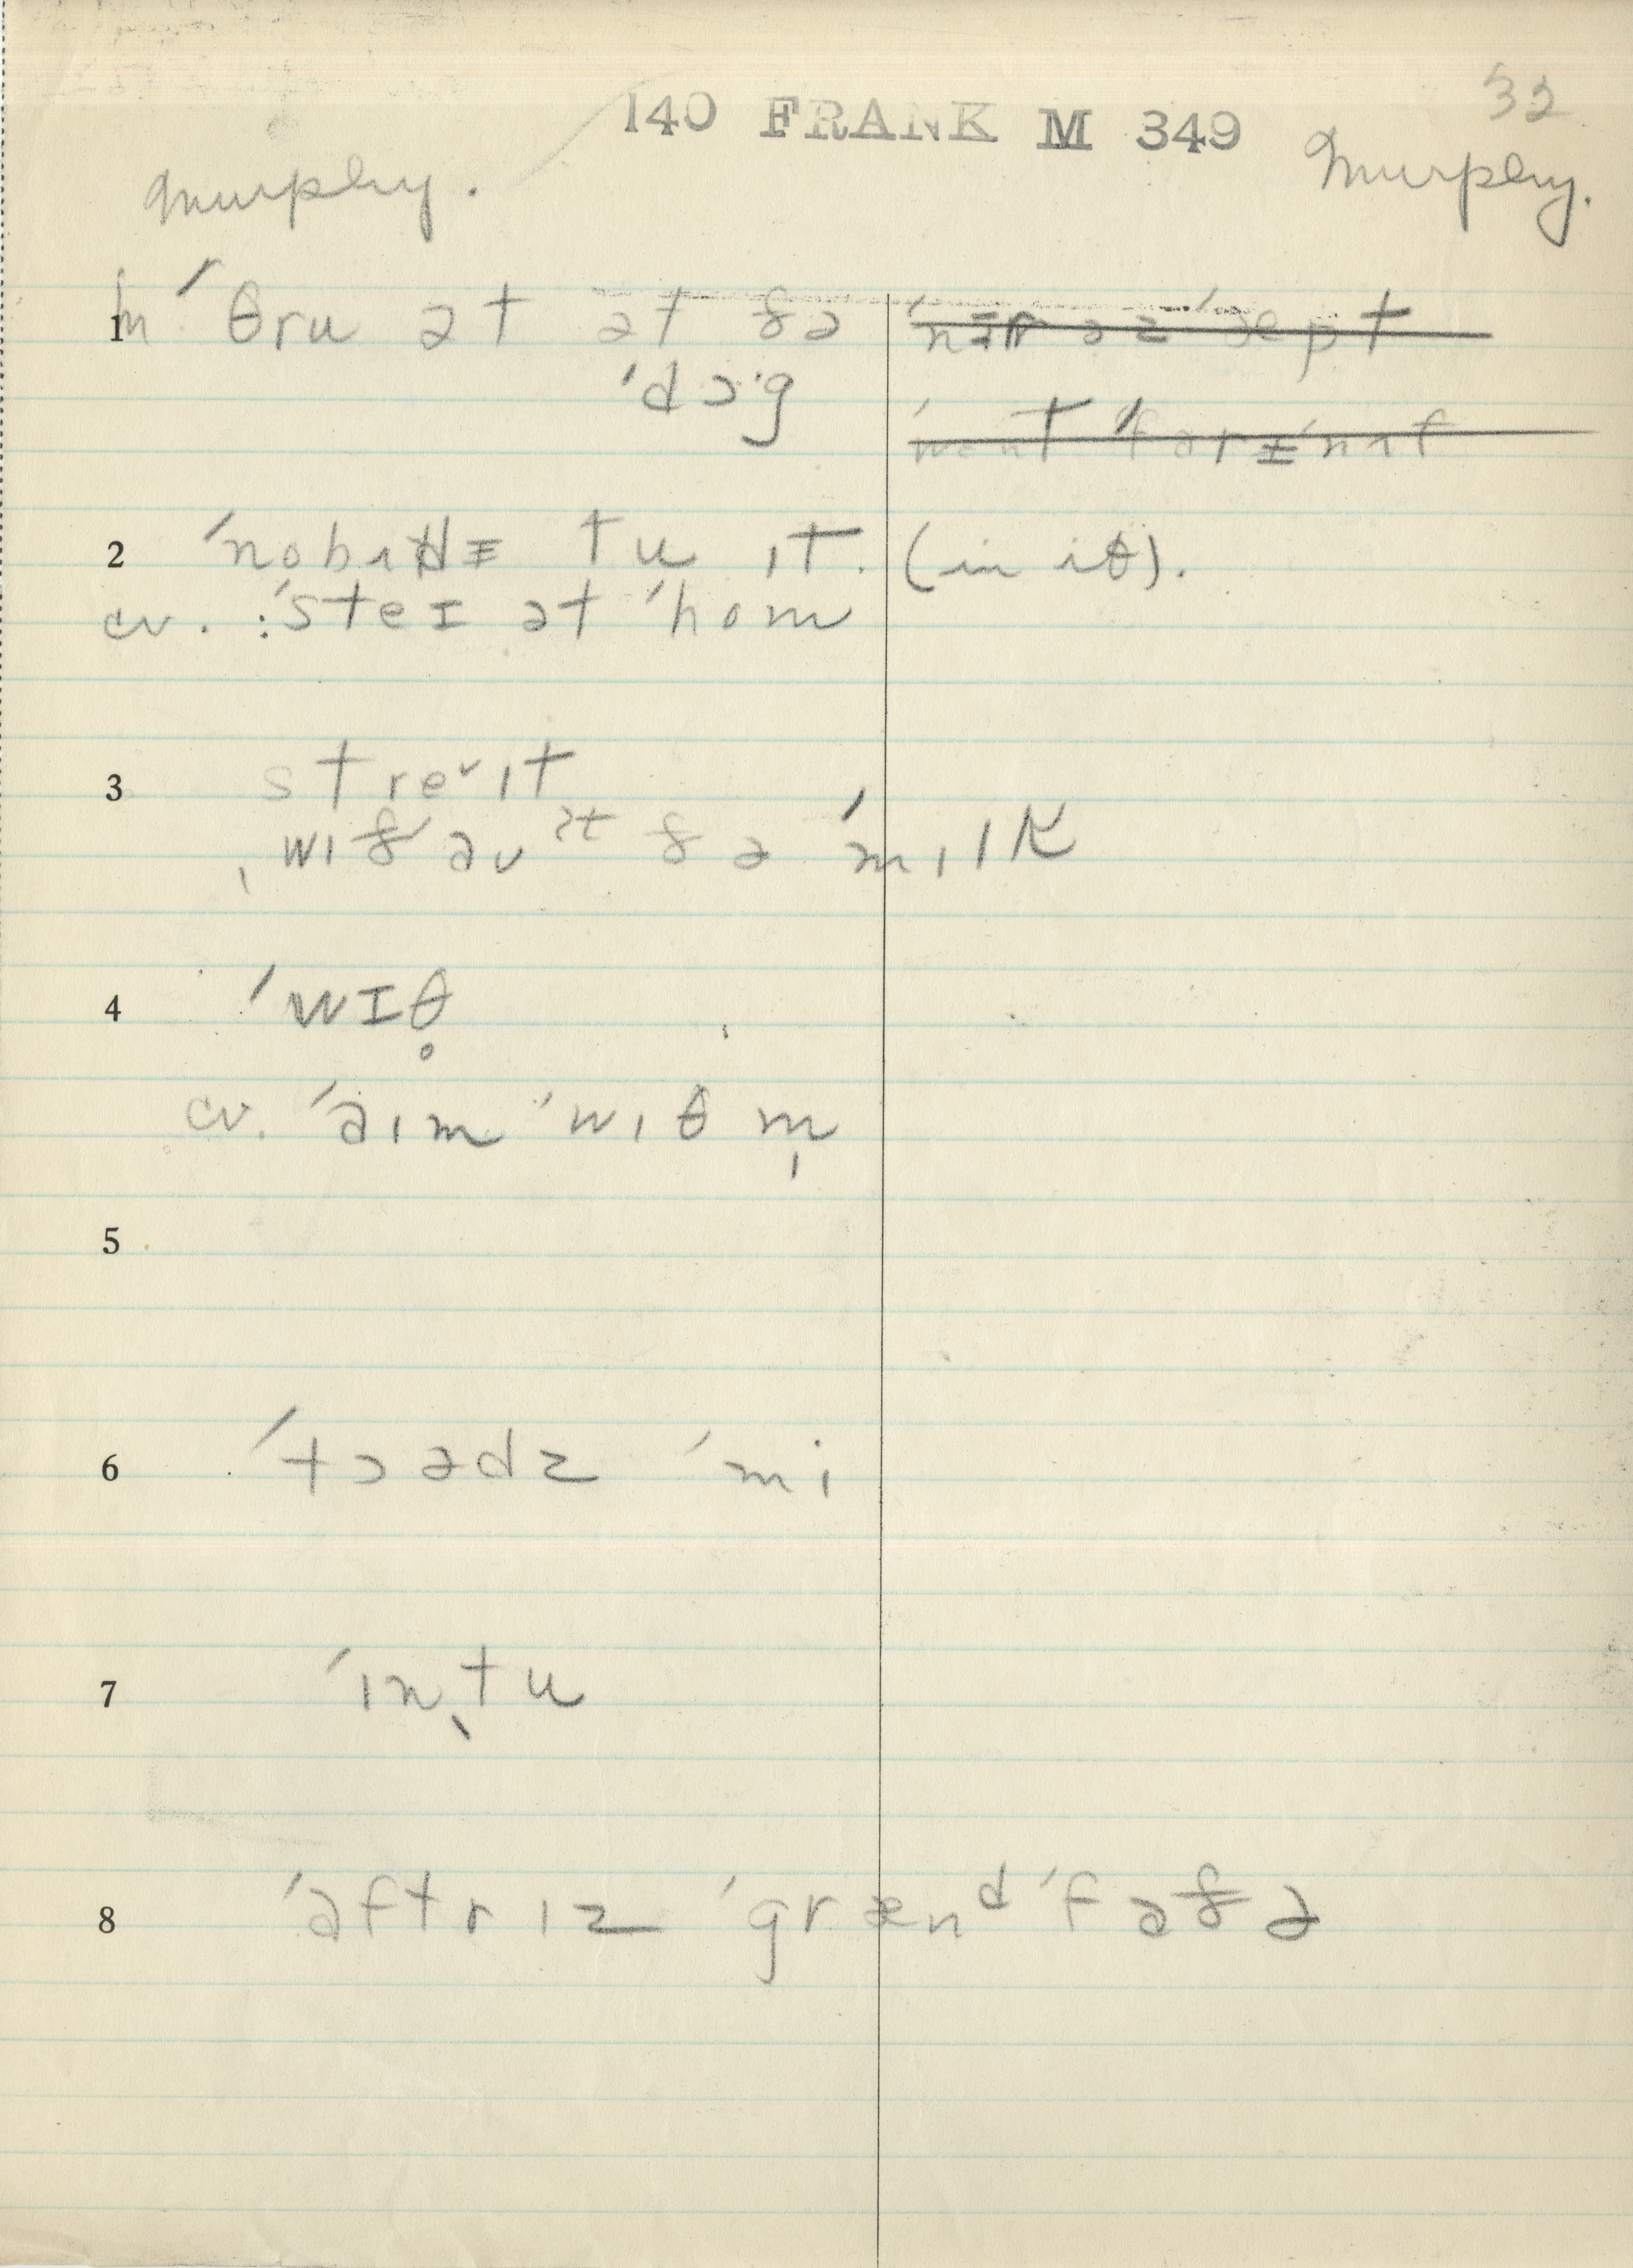 140 FRANK M 349
32
Murphy. Murphy.
1 ˈθru ət ət ðə
ˈdɔ·g
2 ˈnobʌdɪ tu ɪt. (in iθ).
cv. :ˈsteɪ ət ˈhom
3 streᵛɪt
ˌwɪðaʊᵊᵗ ðə ˈmɪlk
4 ˈwɪθ̥
cv. ˈaɪm ˈwɪθ m̩
5
6 ˈtɔədz ˈmi
7 ˈɪnˌtu
8 ˈaftr ɪz ˈgrænᵈˈfaðə